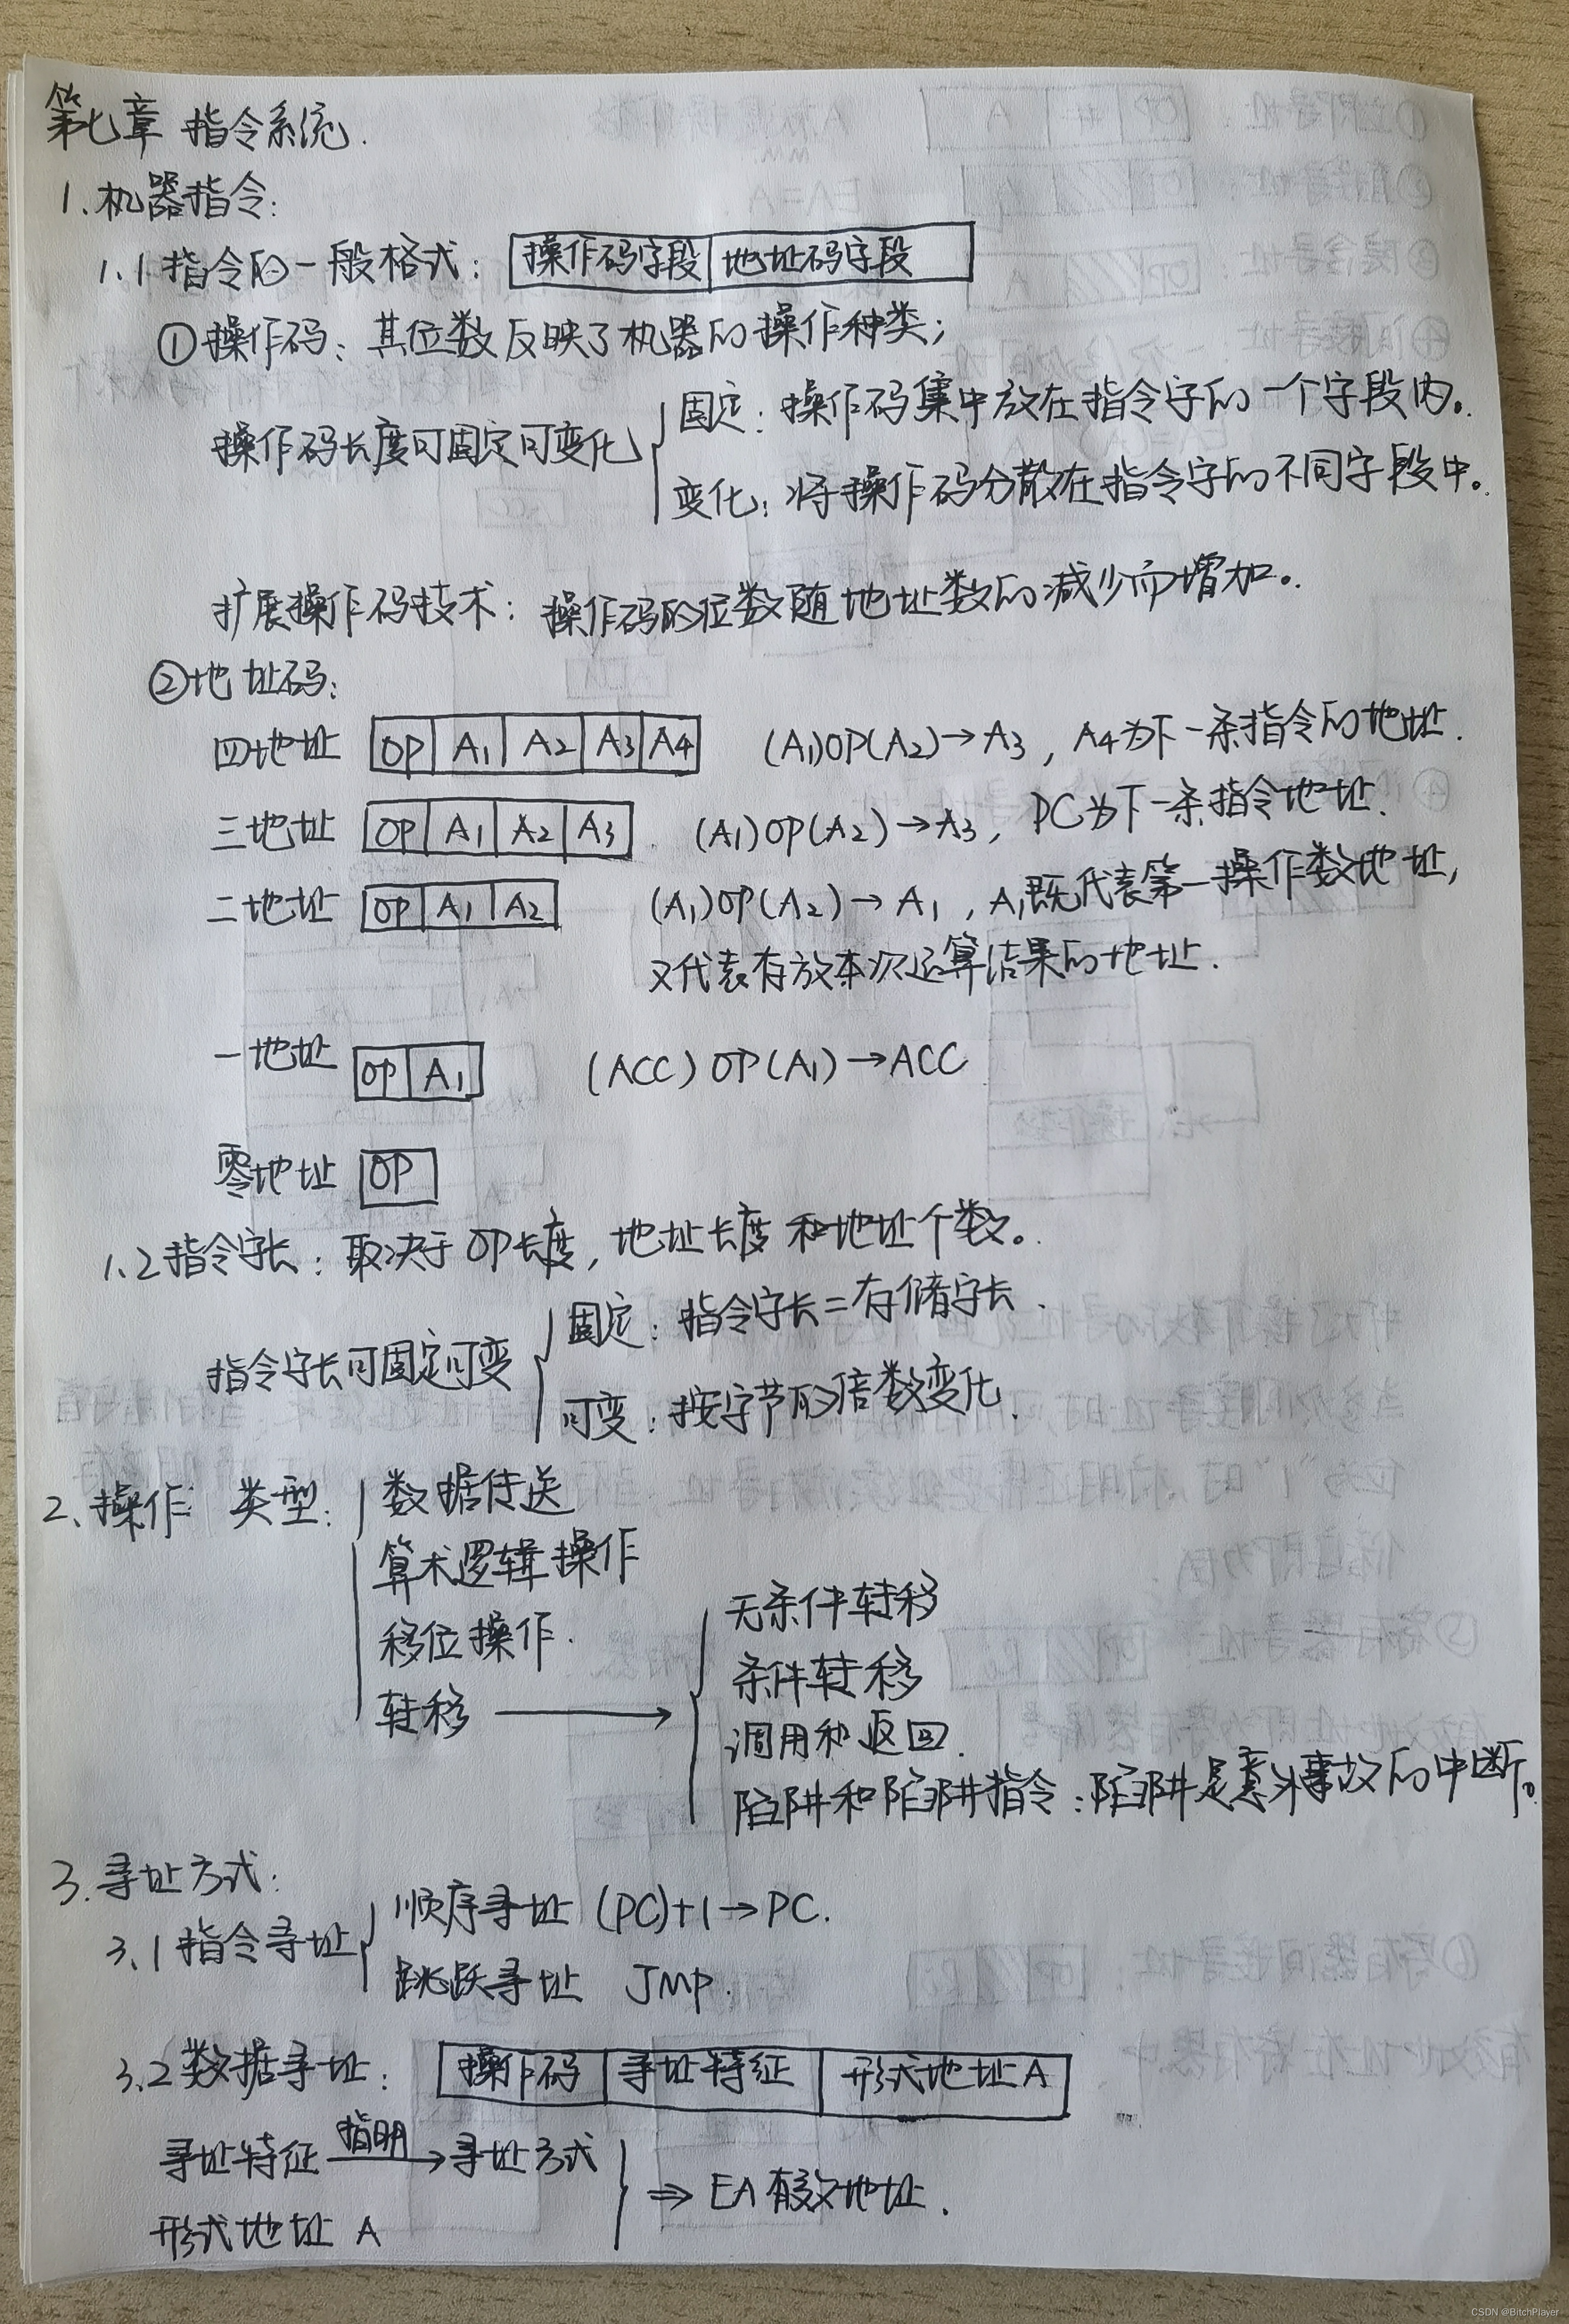 第七章 指令系统.
1.机器指令:
1.1指令的一般格式: 操作码字段 地址码字段
①操作码: 其位数反映了机器的操作种类;
操作码长度可固定可变化
固定: 操作码集中放在指令字的一个字段内。
变化: 将操作码分散在指令字的不同字段中。
扩展操作码技术: 操作码的位数随地址数的减少而增加。
②地址码:
四地址 OP A1 A2 A3 A4 (A1)OP(A2)→A3, A4为下一条指令的地址.
三地址 OP A1 A2 A3 (A1)OP(A2)→A3, PC为下一条指令地址.
二地址 OP A1 A2 (A1)OP(A2)→A1, A1既代表第一操作数地址,
又代表存放本次运算结果的地址.
一地址 OP A1 (ACC)OP(A1)→ACC
零地址 OP
1.2指令字长: 取决于OP长度, 地址长度和地址个数。
指令字长可固定可变
固定: 指令字长=存储字长.
可变: 按字节的倍数变化.
2、操作类型:
数据传送
算术逻辑操作
移位操作.
转移 →
无条件转移
条件转移
调用和返回.
陷阱和陷阱指令: 陷阱是意外事故的中断。
3.寻址方式:
3.1指令寻址
顺序寻址 (PC)+1→PC.
跳跃寻址 JMP.
3.2数据寻址: 操作码 寻址特征 形式地址A
寻址特征 指明→ 寻址方式
形式地址 A
⇒ EA有效地址.
CSDN @BitchPlayer